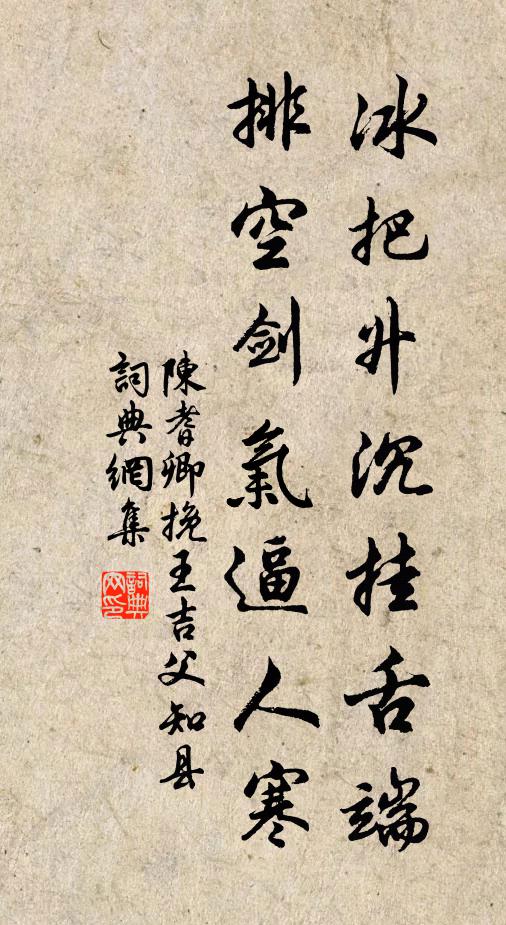 冰把升沉挂舌端
排空剑氣逼人寒
陳耆卿挽王吉父知县
詞典網集
詞典网印